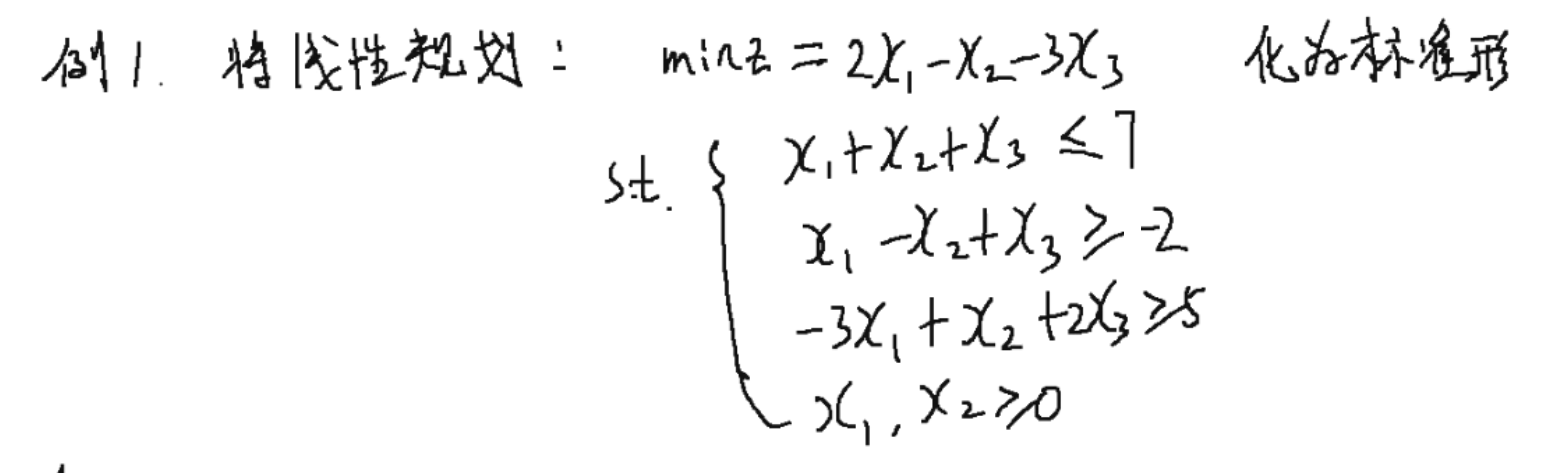 例1. 将线性规划: min z = 2x₁-x₂-3x₃ 化为标准形
s.t. { x₁+x₂+x₃ ≤ 7
x₁-x₂+x₃ ≥ -2
-3x₁+x₂+2x₃ ≥ 5
x₁, x₂ ≥ 0